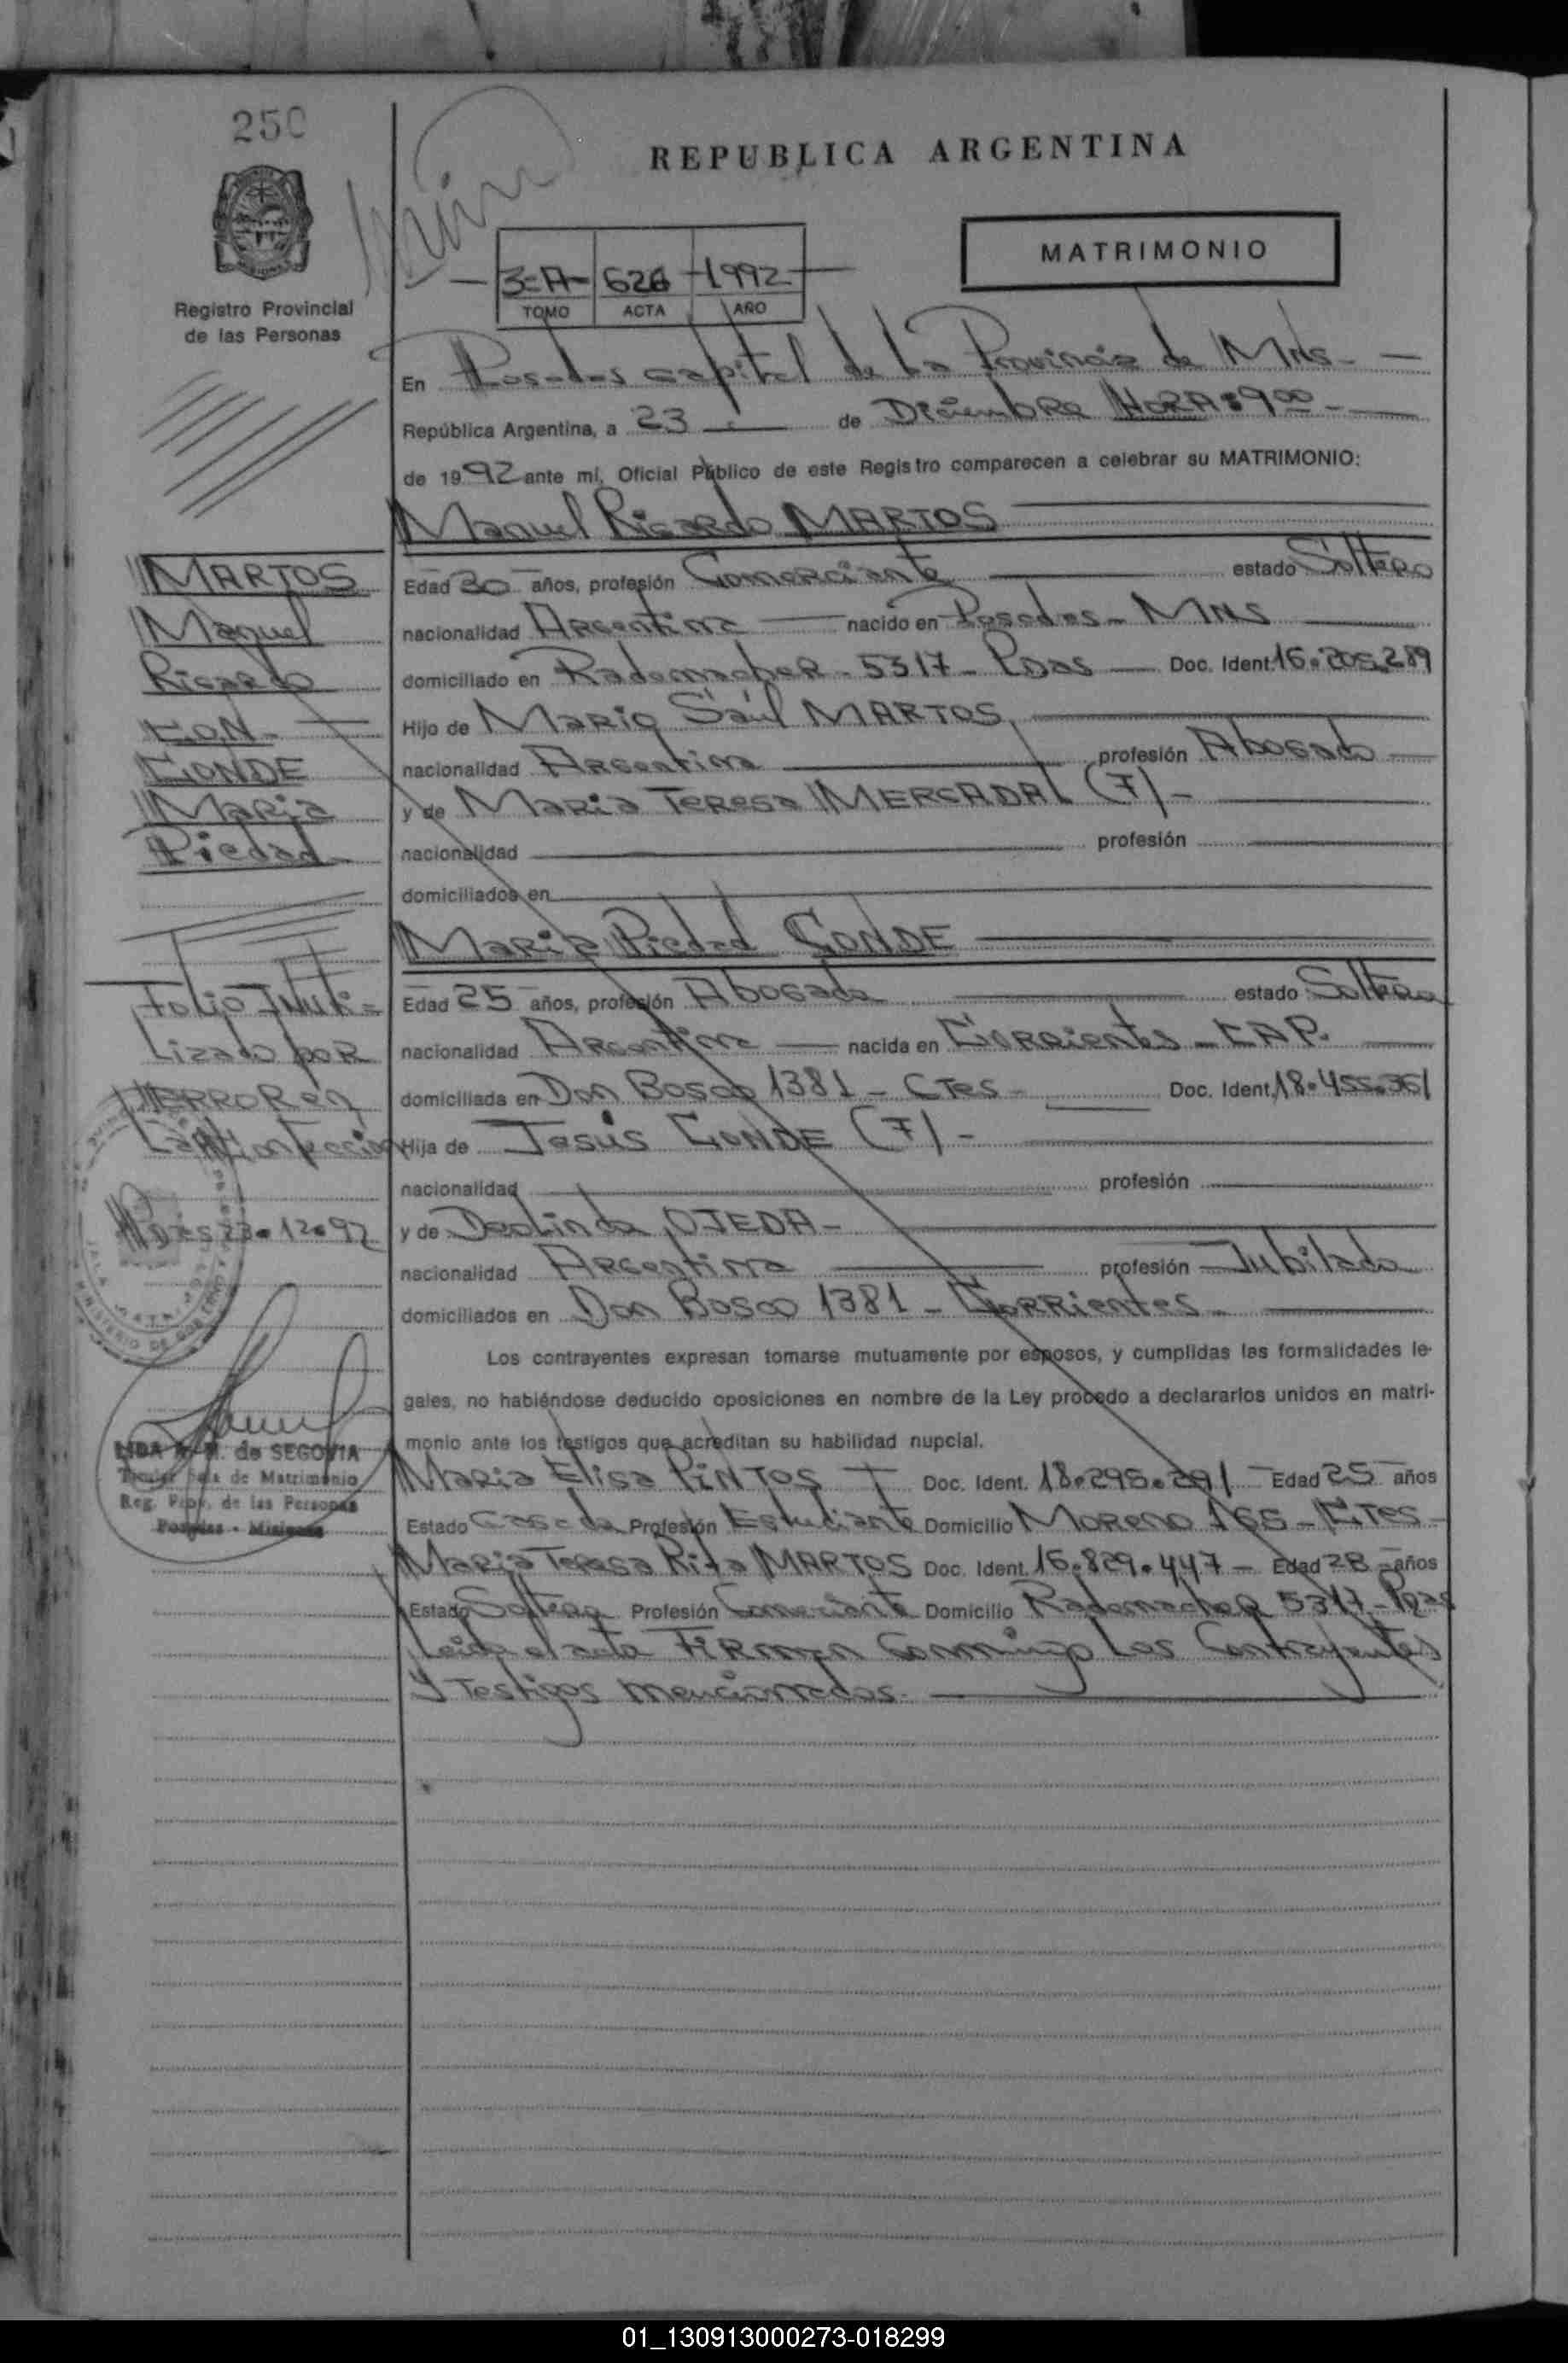 250
REPUBLICA ARGENTINA
MATRIMONIO
Registro Provincial
de las Personas
3-A- 626 -1992-
TOMO ACTA AÑO
En Posadas capital de La Provincia de Mnes-
República Argentina, a 23 de Diciembre HORA: 9 00-
de 1992 ante mi, Oficial Público de este Registro comparecen a celebrar su MATRIMONIO:
Manuel Ricardo MARTOS
MARTOS
Manuel
Ricardo
CON-
CONDE
Maria
Piedad
Edad 30 años, profesión Comerciante estado Soltero
nacionalidad Argentina nacido en Posadas- MNS
domiciliado en Rademacher- 5317- Pdas Doc. Ident. 16.205.289
Hijo de Mario Saúl MARTOS
nacionalidad Argentina profesión Abogado
y de Maria Teresa MERCADAL (F)-
nacionalidad profesión
domiciliados en
Maria Piedad CONDE
Edad 25 años, profesión Abogada estado Soltera
nacionalidad Argentina nacida en Corrientes- CAP.
domiciliada en Don Bosco 1381- CTes- Doc. Ident. 18.455.361
Hija de Jesús CONDE (F)-
nacionalidad profesión
y de Deolinda OJEDA-
nacionalidad Argentina profesión Jubilada
domiciliados en Don Bosco 1381- Corrientes-
Folio Inuti-
Lizado por
ERROR en
La Confeccion
Pdas 23.12.92
Los contrayentes expresan tomarse mutuamente por esposos, y cumplidas las formalidades le-
gales, no habiéndose deducido oposiciones en nombre de la Ley procedo a declararlos unidos en matri-
monio ante los testigos que acreditan su habilidad nupcial.
LIDA de SEGOVIA
Titular Sala de Matrimonio
Reg. Prov. de las Personas
Posadas - Misiones
Maria Elisa PINTOS Doc. Ident. 18.295.291 Edad 25 años
Estado Casada Profesión Estudiante Domicilio Moreno 165- CTes-
Maria Teresa Rita MARTOS Doc. Ident. 16.829.447- Edad 28 años
Estado Soltera Profesión Comerciante Domicilio Rademacher 5317- Pdas
Leida el acta Firman Conmigo Los Contrayentes
Y Testigos mencionados.
01_130913000273-018299